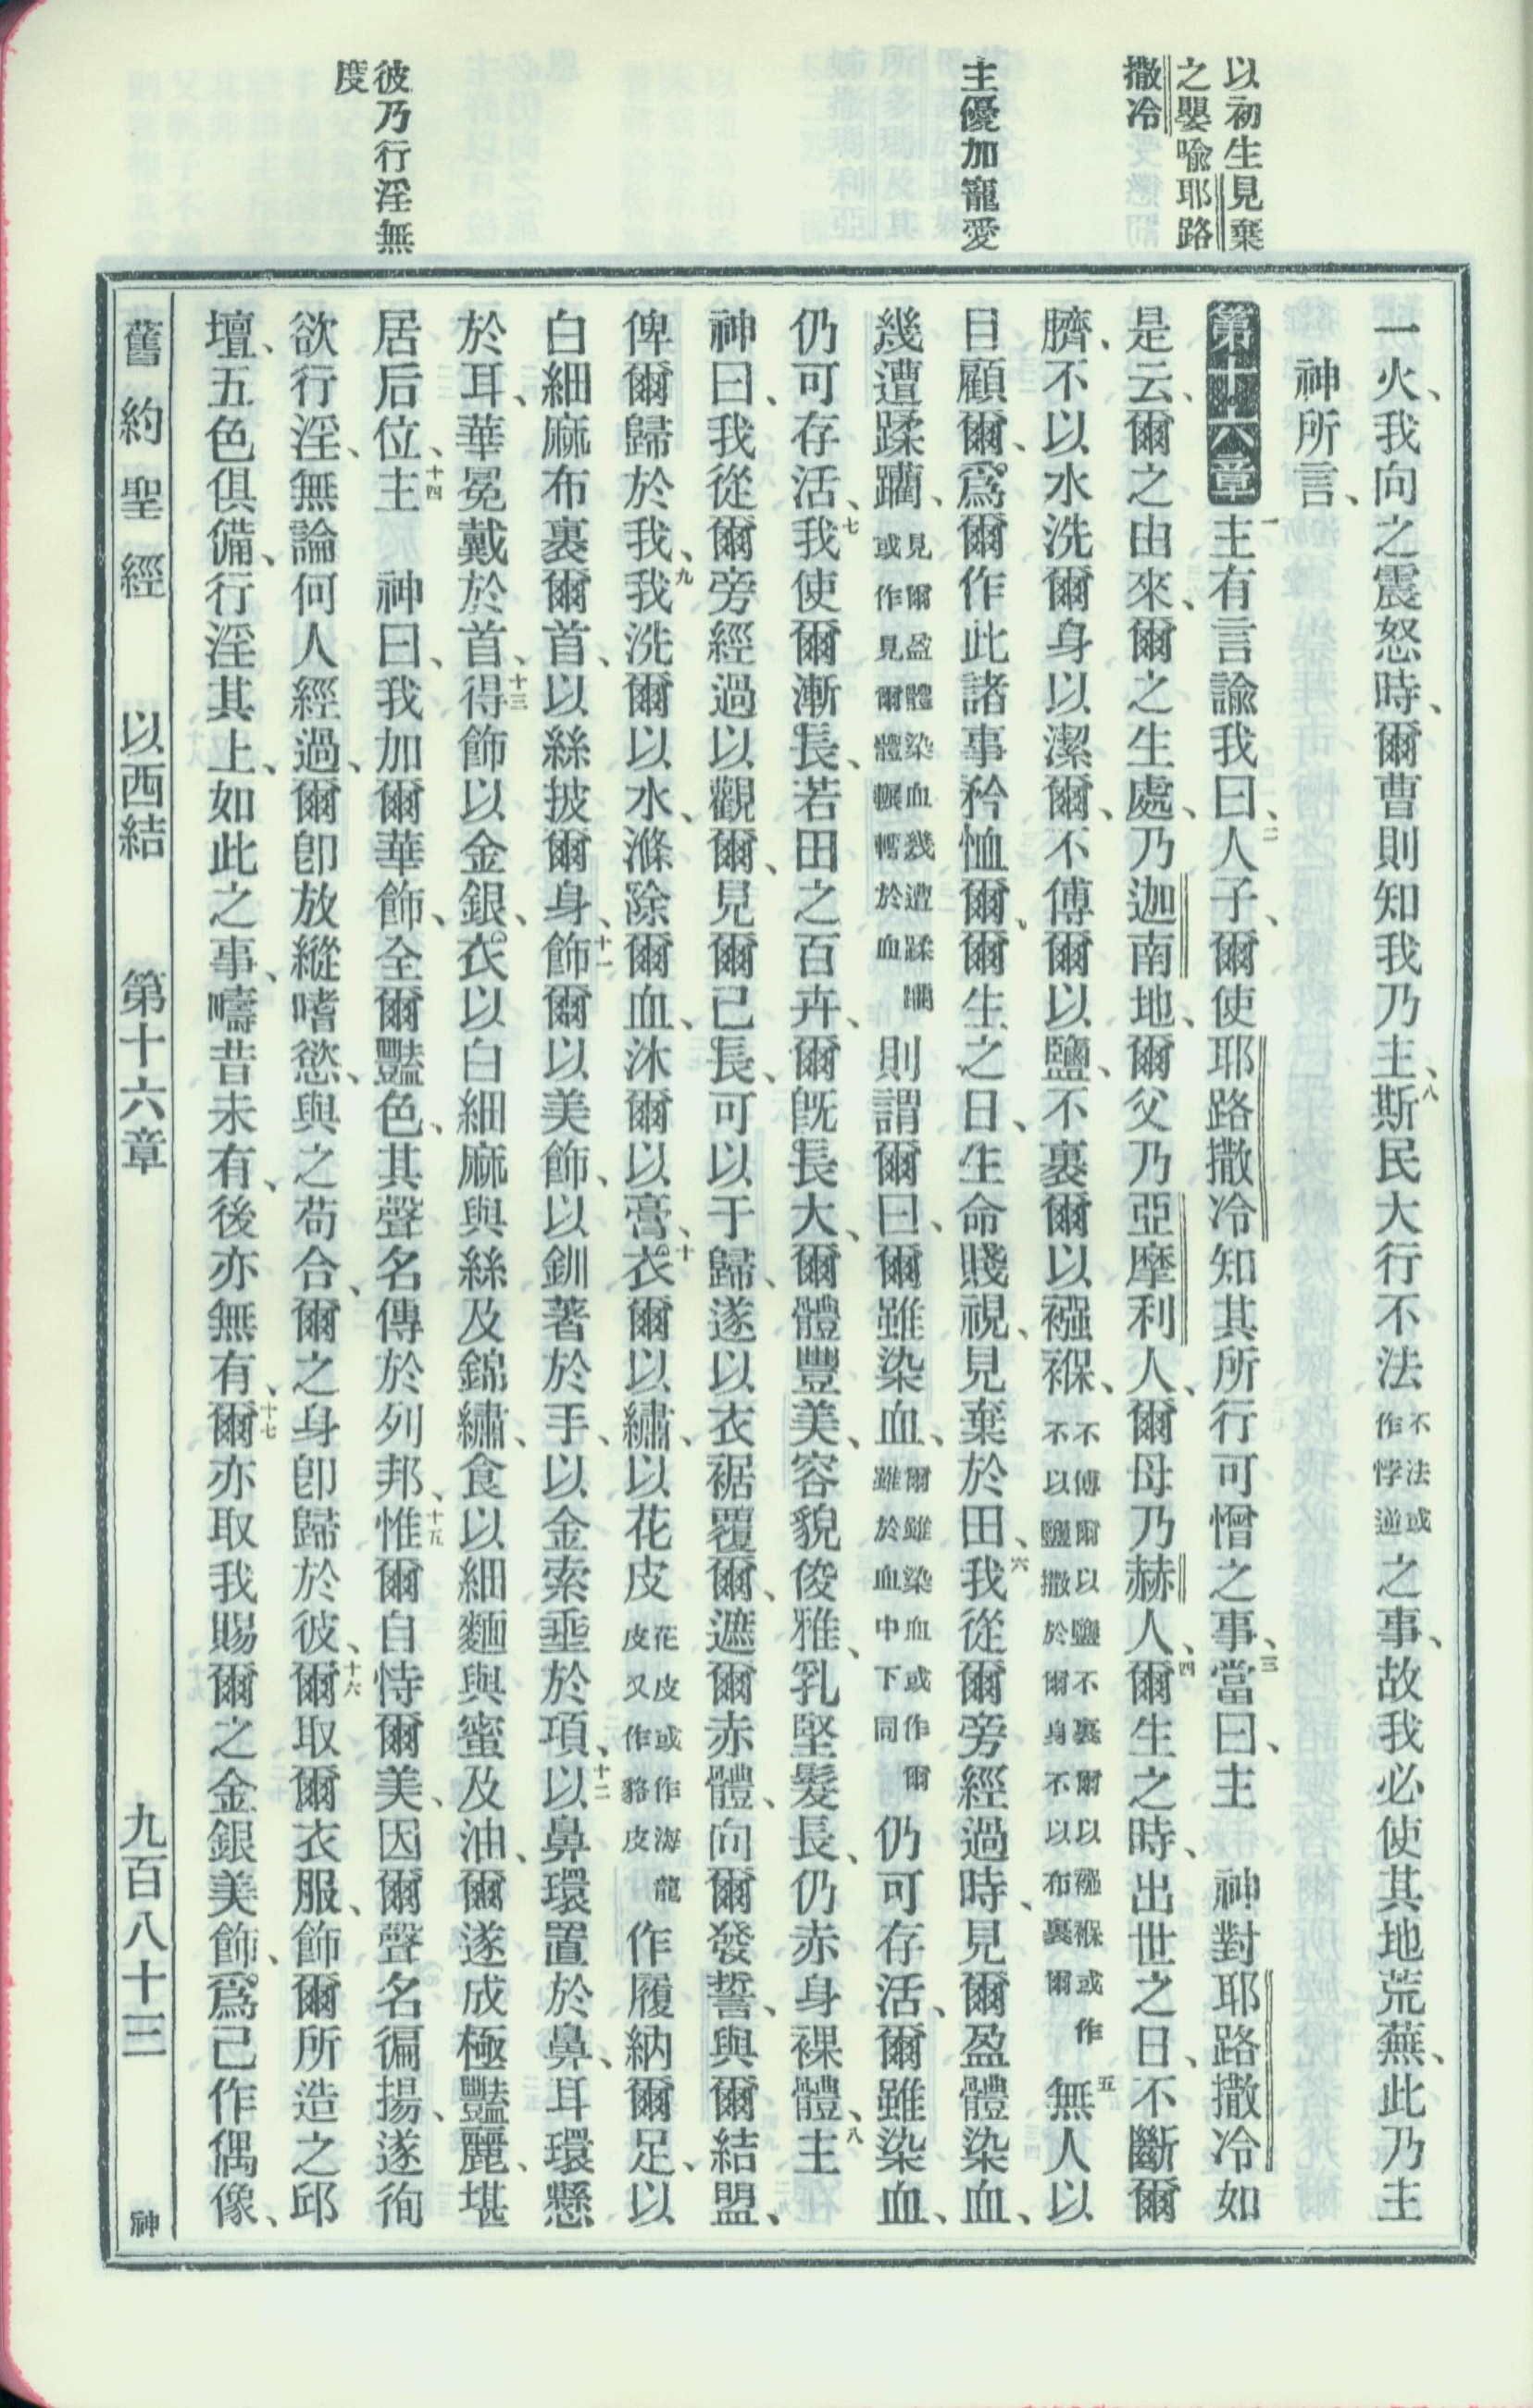 以初生見棄
之嬰喻耶路
撒冷
主優加寵愛
彼乃行淫無
度
一火、我向之震怒時、爾曹則知我乃主、八斯民大行不法不法或作悖逆之事、故我必使其地荒蕪、此乃主
神所言、
第十六章 一主有言諭我曰、二人子、爾使耶路撒冷知其所行可憎之事、三當曰、主　神對耶路撒冷如
是云、爾之由來、爾之生處、乃迦南地、爾父乃亞摩利人、爾母乃赫人、四爾生之時、出世之日、不斷爾
臍、不以水洗爾身以潔爾、不傅爾以鹽、不裹爾以襁褓、不傅爾以鹽不裹爾以襁褓或作不以鹽撒於爾身不以布裹爾五無人以
目顧爾、爲爾作此諸事矜恤爾、爾生之日、生命賤視、見棄於田、六我從爾旁經過時、見爾盈體染血、
幾遭蹂躪、見爾盈體染血幾遭蹂躪或作見爾體輾轉於血則謂爾曰、爾雖染血、爾雖染血或作爾雖於血中下同仍可存活、爾雖染血、
仍可存活、七我使爾漸長、若田之百卉、爾既長大、爾體豐美、容貌俊雅、乳堅髮長、仍赤身裸體、八主
神曰、我從爾旁經過以觀爾、見爾已長、可以于歸、遂以衣裾覆爾、遮爾赤體、向爾發誓、與爾結盟、
俾爾歸於我、九我洗爾以水、滌除爾血、沐爾以膏、十衣爾以繡、以花皮花皮或作海龍皮又作貉皮作履納爾足、以
白細麻布裹爾首、以絲披爾身、十一飾爾以美飾、以釧著於手、以金索垂於項、十二以鼻環置於鼻、耳環懸
於耳、華冕戴於首、十三得飾以金銀、衣以白細麻與絲及錦繡、食以細麵與蜜及油、爾遂成極豔麗、堪
居后位、十四主　神曰、我加爾華飾、全爾豔色、其聲名傳於列邦、十五惟爾自恃爾美、因爾聲名徧揚、遂徇
欲行淫、無論何人經過、爾卽放縱嗜慾、與之苟合、爾之身卽歸於彼、十六爾取爾衣服、飾爾所造之邱
壇、五色俱備、行淫其上、如此之事、疇昔未有、後亦無有、十七爾亦取我賜爾之金銀美飾、爲己作偶像、
舊約聖經　以西結　第十六章　九百八十三　神